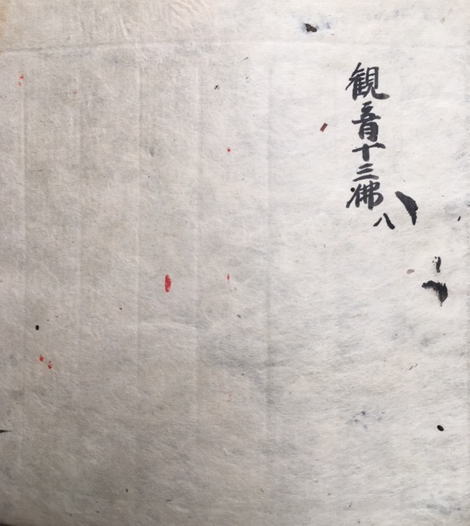 観音十三佛
八